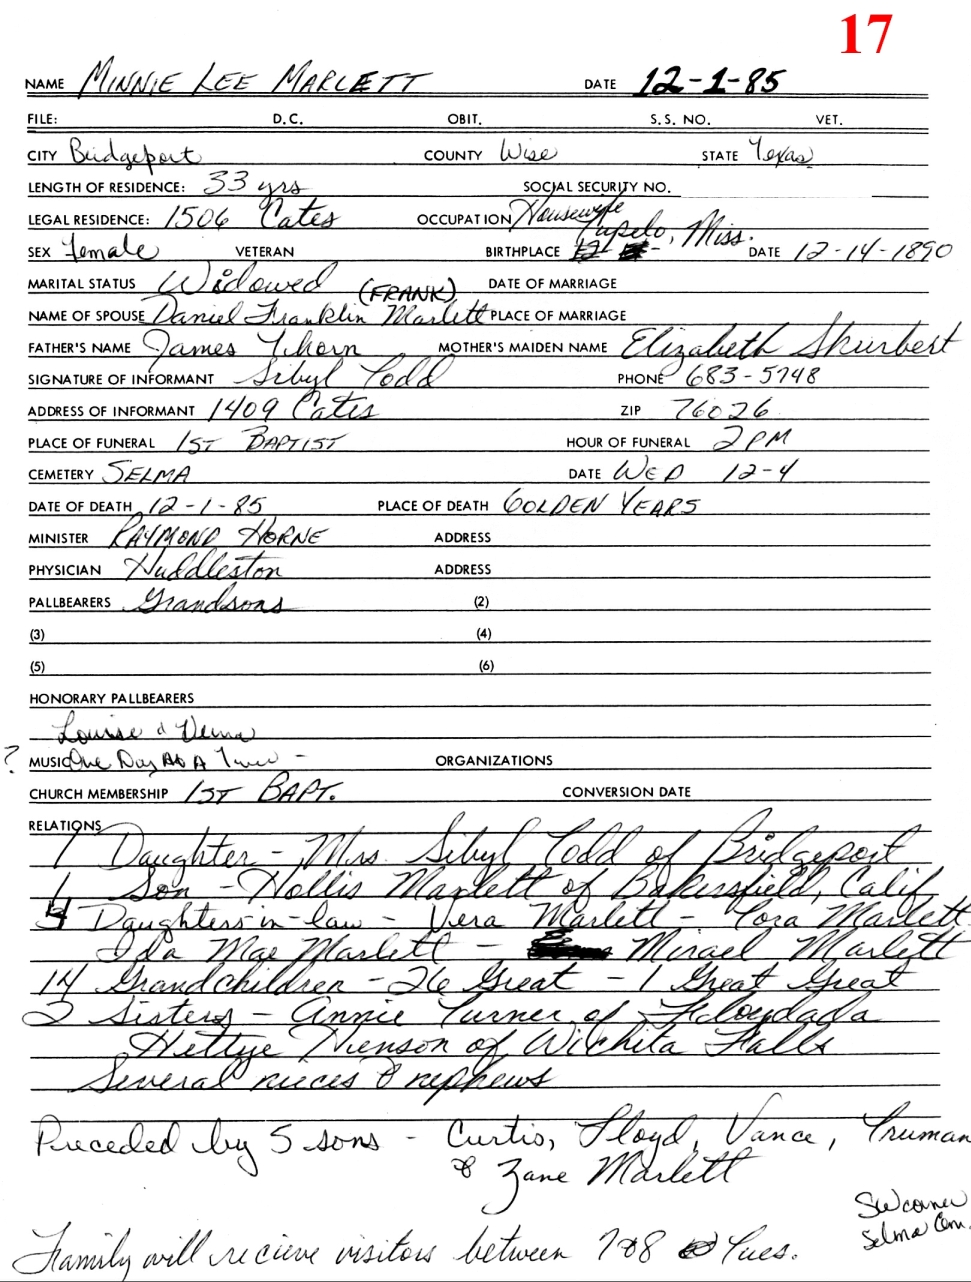 17
NAME MINNIE LEE MARLETT DATE 12-1-85
FILE: D.C. OBIT. S.S. NO. VET.
CITY Bridgeport COUNTY Wise STATE Texas
LENGTH OF RESIDENCE: 33 yrs SOCIAL SECURITY NO.
LEGAL RESIDENCE: 1506 Cates OCCUPATION Housewife
SEX female VETERAN BIRTHPLACE Tupelo, Miss. DATE 12-14-1890
MARITAL STATUS Widowed DATE OF MARRIAGE
(FRANK)
NAME OF SPOUSE Daniel Franklin Marlett PLACE OF MARRIAGE
FATHER'S NAME James Thorn MOTHER'S MAIDEN NAME Elizabeth Shurbert
SIGNATURE OF INFORMANT Sibyl Todd PHONE 683-5748
ADDRESS OF INFORMANT 1409 Cates ZIP 76026
PLACE OF FUNERAL 1ST BAPTIST HOUR OF FUNERAL 2 PM
CEMETERY SELMA DATE WED 12-4
DATE OF DEATH 12-1-85 PLACE OF DEATH GOLDEN YEARS
MINISTER RAYMOND HORNE ADDRESS
PHYSICIAN Huddleston ADDRESS
PALLBEARERS Grandsons (2)
(3) (4)
(5) (6)
HONORARY PALLBEARERS
Louise & Verna
? MUSIC One Day At A Time - ORGANIZATIONS
CHURCH MEMBERSHIP 1ST BAPT. CONVERSION DATE
RELATIONS
1 Daughter - Mrs. Sibyl Todd of Bridgeport
1 Son - Hollis Marlett of Bakersfield, Calif
4 Daughters-in-law - Vera Marlett - Cora Marlett
Ida Mae Marlett - Mirael Marlett
14 Grandchildren - 26 Great - 1 Great Great
2 Sisters - Annie Turner of Floydada
Hettye Henson of Wichita Falls
Several nieces & nephews
Preceded by 5 sons - Curtis, Floyd, Vance, Truman
& Zane Marlett
SW corner
Selma Cem.
Family will recieve visitors between 7&8 Tues.